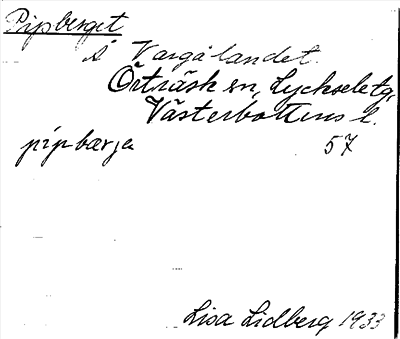 Pipberget
å Vargålandet.
Örträsk sn, Lychsele tg,
Västerbottens l.
pipbærja 57
Lisa Lidberg 1933